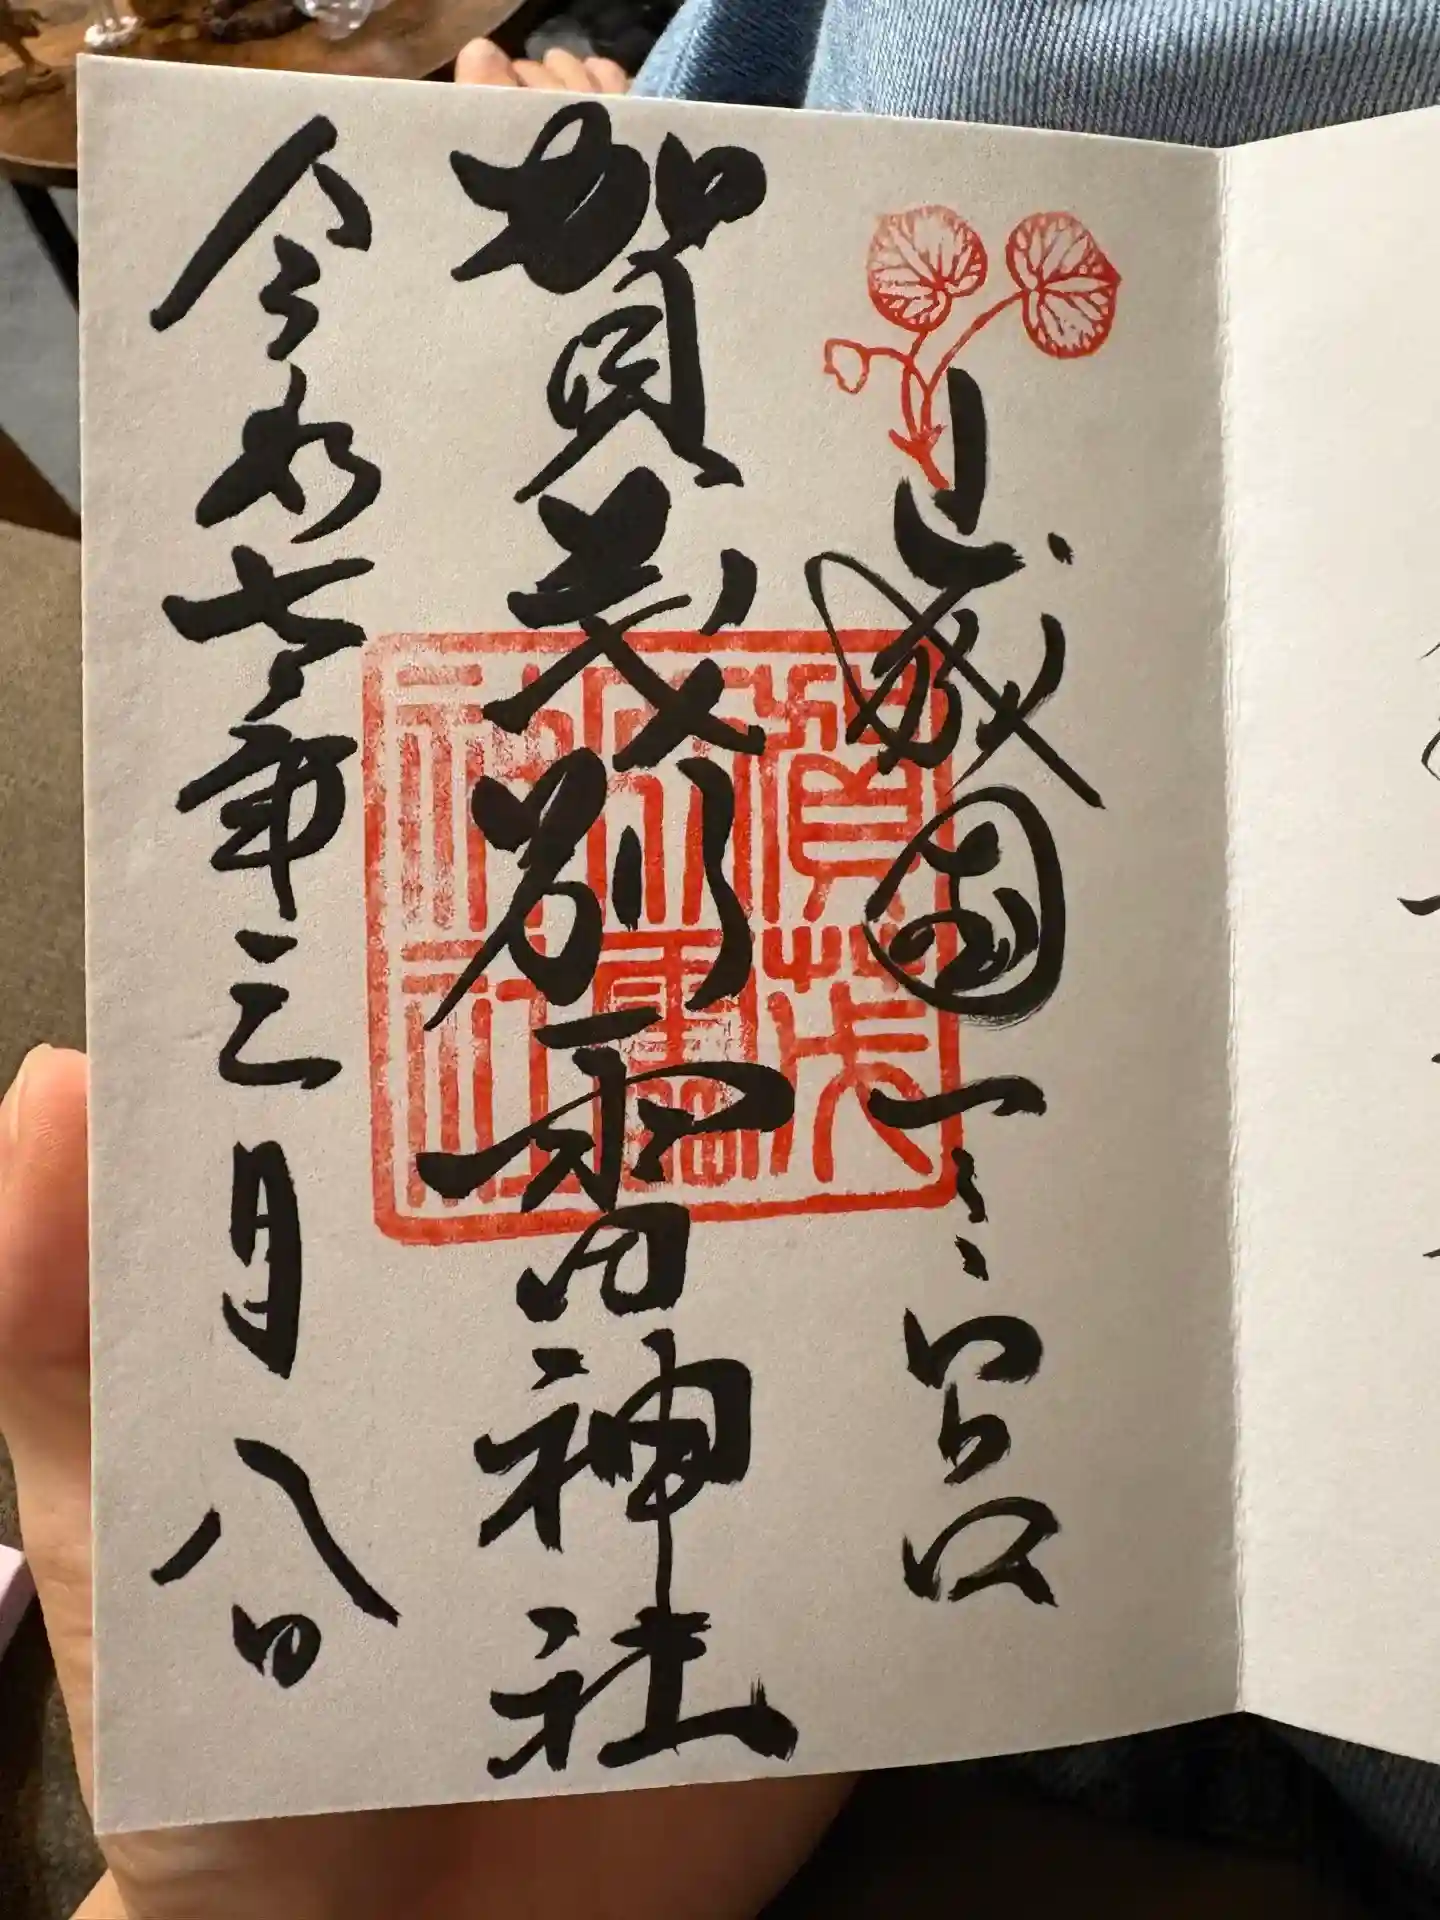 山城国一之宮
賀茂別雷神社
令和七年三月八日
賀茂
別雷
神社